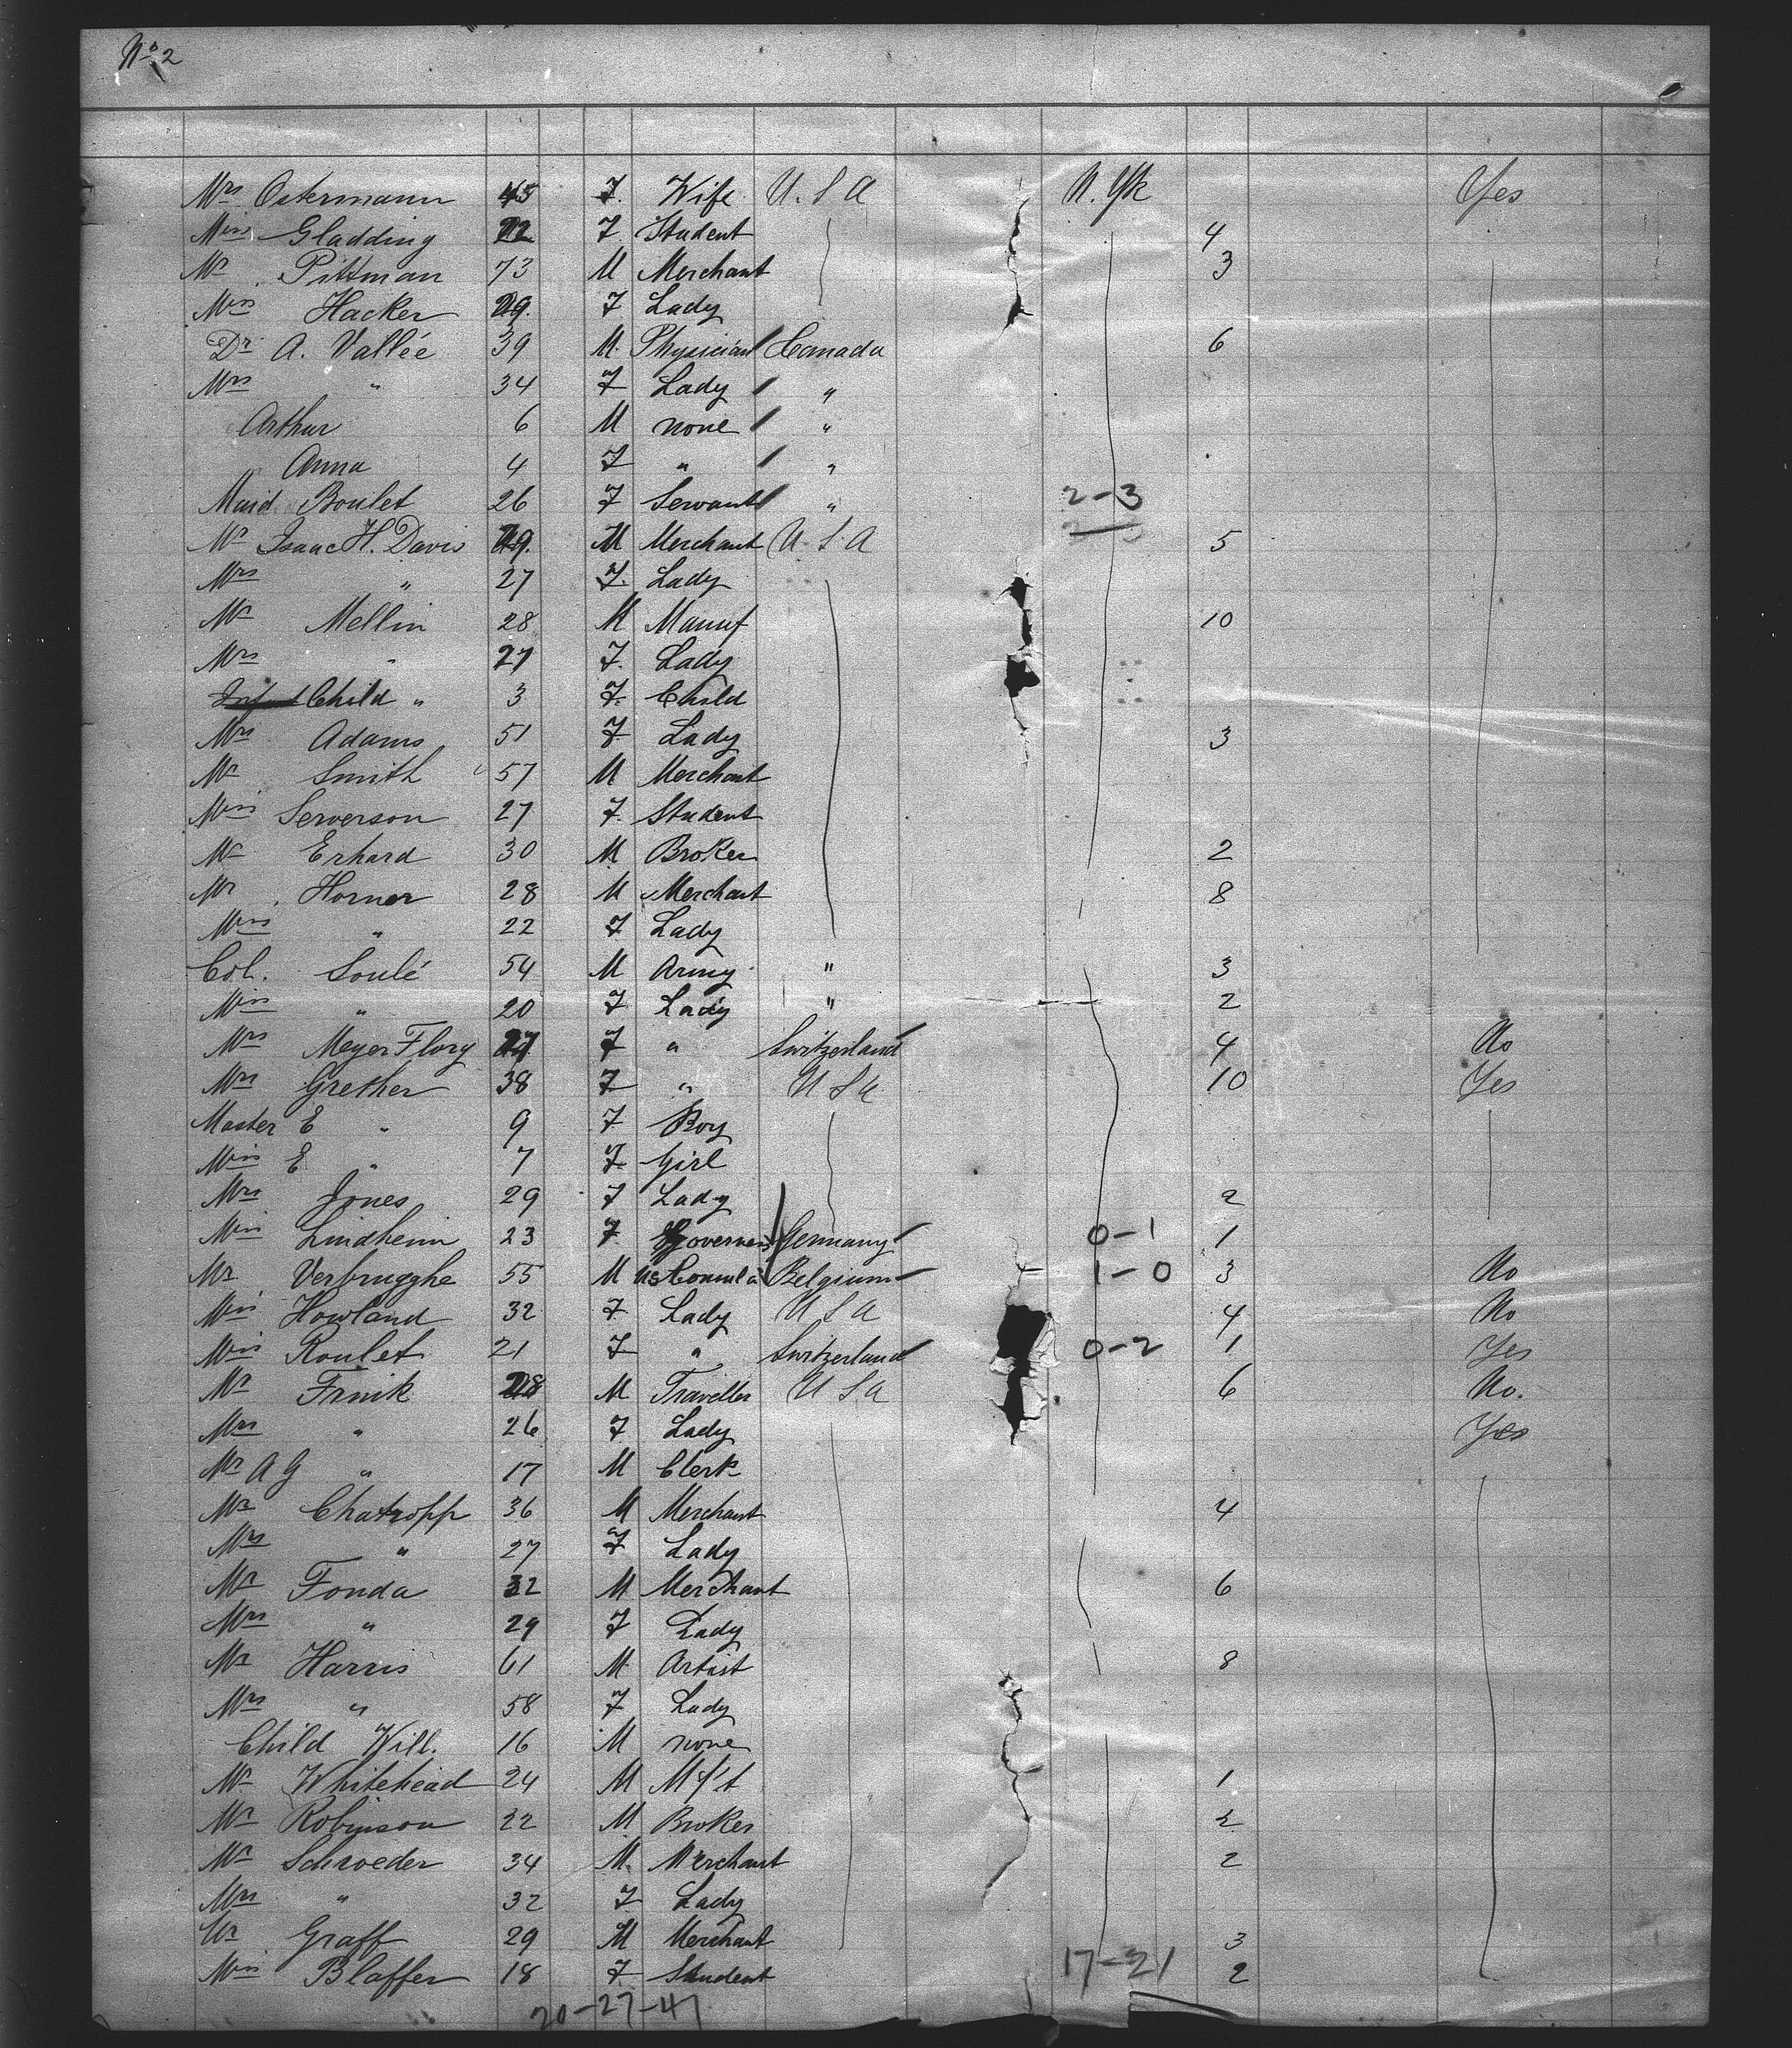 No 2
Mrs Ostermann 45 F. Wife U.S.A N. Yk Yes
Miss Gladding 22 F Student 4
Mr Pittman 73 M Merchant 3
Miss Hacker 29. F Lady
Dr A. Vallée 39 M. Physician Canada 6
Mrs " 34 F Lady "
Arthur 6 M none "
Anna 4 F " "
Maid Boulet 26 F Servant " 2-3
Mr Isaac H. Davis 29. M Merchant U.S.A 5
Mrs " 27 F. Lady
Mr Mellin 28 M Manuf 10
Mrs " 27 F. Lady
Child " 3 F. Child
Mrs Adams 51 F. Lady 3
Mr Smith 57 M Merchant
Miss Serverson 27 F. Student
Mr Erhard 30 M. Broker 2
Mr Horner 28 M Merchant 8
Mrs " 22 F Lady
Col. Soulé 54 M Army " 3
Miss " 20 F Lady " 2
Mrs Meyer Flory 27 F " Switzerland 4 No
Mrs Grether 38 F " U S A 10 Yes
Master E " 9 F Boy
Miss E " 7 F. Girl
Mrs Jones 29 F Lady 2
Miss Lindheim 23 F Governess Germany 0-1 1
Mr. Verbrugghe 55 M US Consul Belgium 1-0 3 No
Miss Howland 32 F Lady U S A 4 No
Miss Roulet 21 F " Switzerland 0-2 1 Yes
Mr Frnik 28 M Traveller U S A 6 No.
Mrs " 26 F Lady Yes
Mr A G " 17 M Clerk
Mr Chatropp 36 M Merchant 4
Mrs " 27 F Lady
Mr Fonda 32 M Merchant 6
Mrs " 29 F Lady
Mr Harris 61 M Artist 8
Mrs " 58 F Lady
Child Will. 16 M none
Mr Whitehead 24 M Mf't 1
Mr Robinson 22 M Broker 2
Mr Schroeder 34 M. Merchant 2
Mrs " 32 F Lady
Mr Graff 29 M Merchant 3
Miss Blaffer 18 F Student 17-21 2
20-27-47